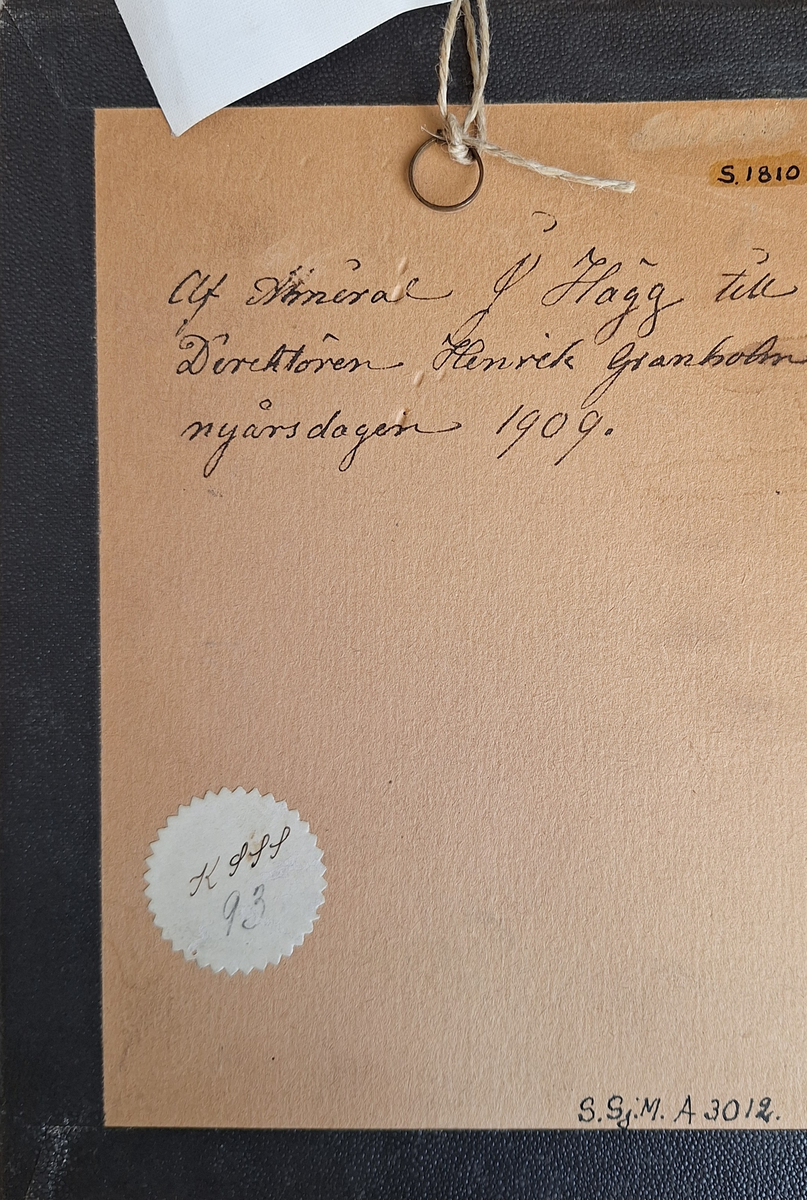 S.1810
Af Amiral J Hägg till
Direktören Henrik Granholm
nyårsdagen 1909.
KSSS
93
S.Sj.M. A 3012.